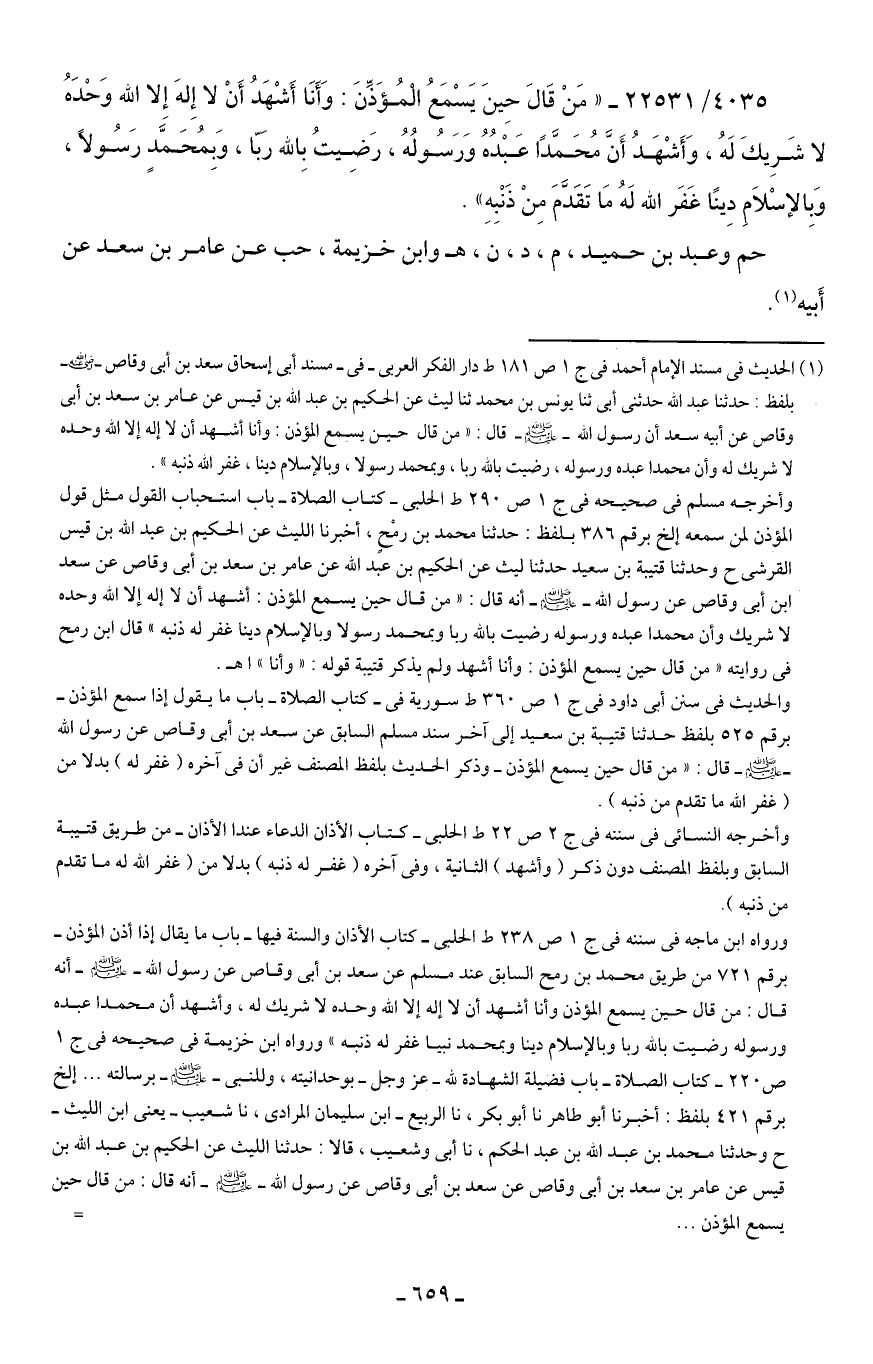 ٤٠٣٥/ ٢٢٥٣١ ـ « مَنْ قَالَ حِينَ يَسْمَعُ الْمُؤَذِّنَ : وَأَنَا أَشْهَدُ أَنْ لا إِلهَ إِلا الله وَحْدَهُ
لا شَرِيكَ لَهُ ، وَأَشْهَدُ أَنَّ مُحَمَّدًا عَبْدُهُ وَرَسُولُهُ ، رَضِيتُ بِالله رَبّا ، وَبِمُحَمَّدٍ رَسُولاً ،
وَبِالإِسْلاَمِ دِينًا غَفَرَ الله لَهُ مَا تَقَدَّمَ مِنْ ذَنْبِهِ» .
حم وعبد بن حميد ، م ، د ، ن ، هـ وابن خزيمة ، حب عن عامر بن سعد عن
أَبيه(١).
(١) الحديث فى مسند الإمام أحمد فى ج ١ ص ١٨١ ط دار الفكر العربى ـ فى ـ مسند أبى إسحاق سعد بن أبى وقاص ـ رضي الله عنه ـ
بلفظ : حدثنا عبد الله حدثنى أبى ثنا يونس بن محمد ثنا ليث عن الحكيم بن عبد الله بن قيس عن عامر بن سعد بن أبى
وقاص عن أبيه سعد أن رسول الله ـ ﷺ ـ قال : « من قال حين يسمع المؤذن : وأنا أشهد أن لا إله إلا الله وحده
لا شريك له وأن محمدا عبده ورسوله ، رضيت بالله ربا ، وبمحمد رسولا ، وبالإسلام دينا ، غفر الله ذنبه » .
وأخرجه مسلم فى صحيحه فى ج ١ ص ٢٩٠ ط الحلبى ـ كتاب الصلاة ـ باب استحباب القول مثل قول
المؤذن لمن سمعه إلخ برقم ٣٨٦ بلفظ : حدثنا محمد بن رمْحٍ ، أخبرنا الليث عن الحكيم بن عبد الله بن قيس
القرشى ح وحدثنا قتيبة بن سعيد حدثنا ليث عن الحكيم بن عبد الله عن عامر بن سعد بن أبى وقاص عن سعد
ابن أبى وقاص عن رسول الله ـ ﷺ ـ أنه قال : « من قال حين يسمع المؤذن : أشهد أن لا إله إلا الله وحده
لا شريك وأن محمدا عبده ورسوله رضيت بالله ربا وبمحمد رسولا وبالإسلام دينا غفر له ذنبه » قال ابن رمح
فى روايته « من قال حين يسمع المؤذن : وأنا أشهد ولم يذكر قتيبة قوله : « وأنا » اهـ .
والحديث فى سنن أبى داود فى ج ١ ص ٣٦٠ ط سورية فى ـ كتاب الصلاة ـ باب ما يقول إذا سمع المؤذن ـ
برقم ٥٢٥ بلفظ حدثنا قتيبة بن سعيد إلى آخر سند مسلم السابق عن سعد بن أبى وقاص عن رسول الله
ـ ﷺ ـ قال : « من قال حين يسمع المؤذن ـ وذكر الحديث بلفظ المصنف غير أن فى آخره ( غفر له ) بدلا من
( غفر الله ما تقدم من ذنبه ) .
وأخرجه النسائى فى سننه فى ج ٢ ص ٢٢ ط الحلبى ـ كتاب الأذان الدعاء عندا الأذان ـ من طريق قتيبة
السابق وبلفظ المصنف دون ذكر ( وأشهد ) الثانية ، وفى آخره ( غفر له ذنبه ) بدلا من ( غفر الله له ما تقدم
من ذنبه ).
ورواه ابن ماجه فى سننه فى ج ١ ص ٢٣٨ ط الحلبى ـ كتاب الأذان والسنة فيها ـ باب ما يقال إذا أذن المؤذن ـ
برقم ٧٢١ من طريق محمد بن رمح السابق عند مسلم عن سعد بن أبى وقاص عن رسول الله ـ ﷺ ـ أنه
قال : من قال حين يسمع المؤذن وأنا أشهد أن لا إله إلا الله وحده لا شريك له ، وأشهد أن محمدا عبده
ورسوله رضيت بالله ربا وبالإسلام دينا وبمحمد نبيا غفر له ذنبه » ورواه ابن خزيمة فى صحيحه فى ج ١
ص٢٢٠ ـ كتاب الصلاة ـ باب فضيلة الشهادة لله ـ عز وجل ـ بوحدانيته ، وللنبى ـ ﷺ ـ برسالته ... إلخ
برقم ٤٢١ بلفظ : أخبرنا أبو طاهر نا أبو بكر ، نا الربيع ـ ابن سليمان المرادى ، نا شعيب ـ يعنى ابن الليث ـ
ح وحدثنا محمد بن عبد الله بن عبد الحكم ، نا أبى وشعيب ، قالا : حدثنا الليث عن الحكيم بن عبد الله بن
قيس عن عامر بن سعد بن أبى وقاص عن سعد بن أبى وقاص عن رسول الله ـ ﷺ ـ أنه قال : من قال حين
يسمع المؤذن ...
=
ـ ٦٥٩ ـ